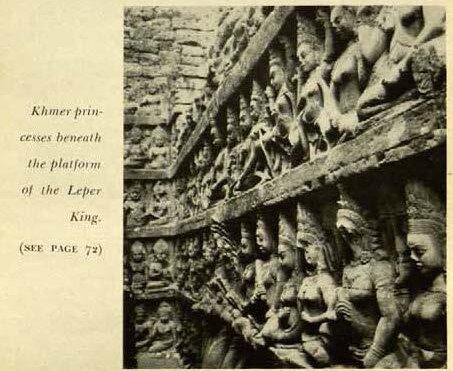 Khmer prin-
cesses beneath
the platform
of the Leper
King.
(SEE PAGE 72)